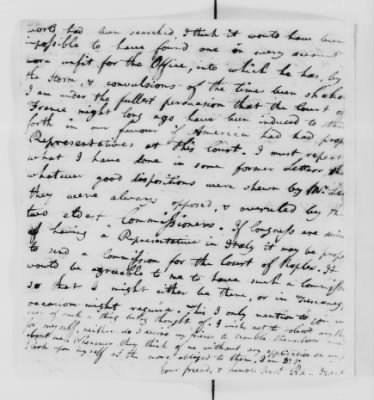 world had been searched, I think it would have been
impossible to have found one on every account
more unfit for the Office, into which he has, by
the Storm, & convulsions of the times been shaken
I am under the fullest persuasion that the Court of
France might long ago have been induced to stand
forth in our favour if America had had proper
Representatives at this Court. I must repeat
what I have done in some former Letters that
whatever good dispositions were shewn by Mr. Lee
they were always opposed, & overruled by the
two eldest commissioners. If Congress are desirous
of having a Representative in Italy it may be proper
to send a Commission for the Court of Naples. It
would be agreeable to me to have such a Commission
so that I might either be there, or in Tuscany, as
occasion might require. This I only mention to you in
case of such a thing being thought of. I wish not to solicit any thing
for myself, neither do I desire my friends to trouble themselves
about me. Whenever they think of me without any application on my part
I look upon myself as the more obliged to them. I am Dr Sr
Your friend, & humble Servt. Ra. Izard